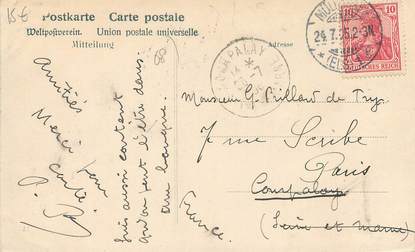 15 €
Postkarte Carte postale
Weltpostverein. Union postale universelle
Mitteilung
Adresse
COMPALAY
10
DEUTSCHES REICH
24.7.05.2-3N
(ELS.)
Amitiés
Merci pour
carte.
suis aussi content
qu'on peut l'être dans
une banque.
Monsieur G. Prillard de
7 rue Scribe
Paris
Compalay
(Seine et Marne)
France